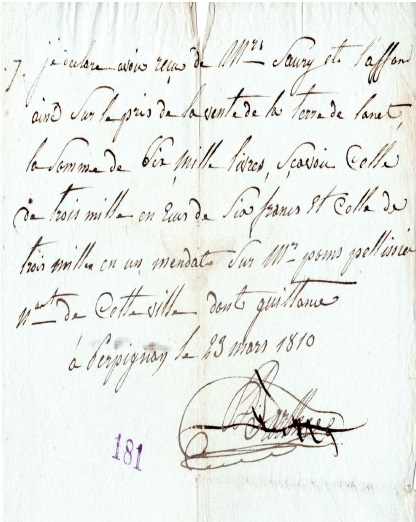 7. je declare avoir reçu de Mrs Saury et
ainé Sur le pris de la vente de la terre de lanet,
la Somme de Six mille livres, Sçavoir Celle
de trois mille en Ecus de Six francs Et Celle de
trois mille en un mendat Sur Mr pons pellissier
nant de Cette ville dont quittance
à Perpignan le 23 mars 1810
181